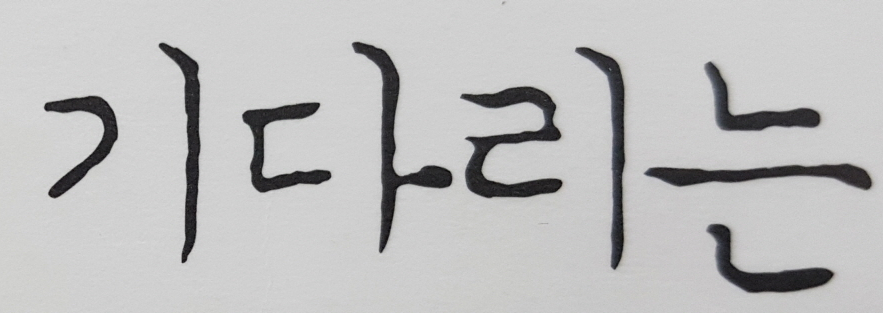 기다리는